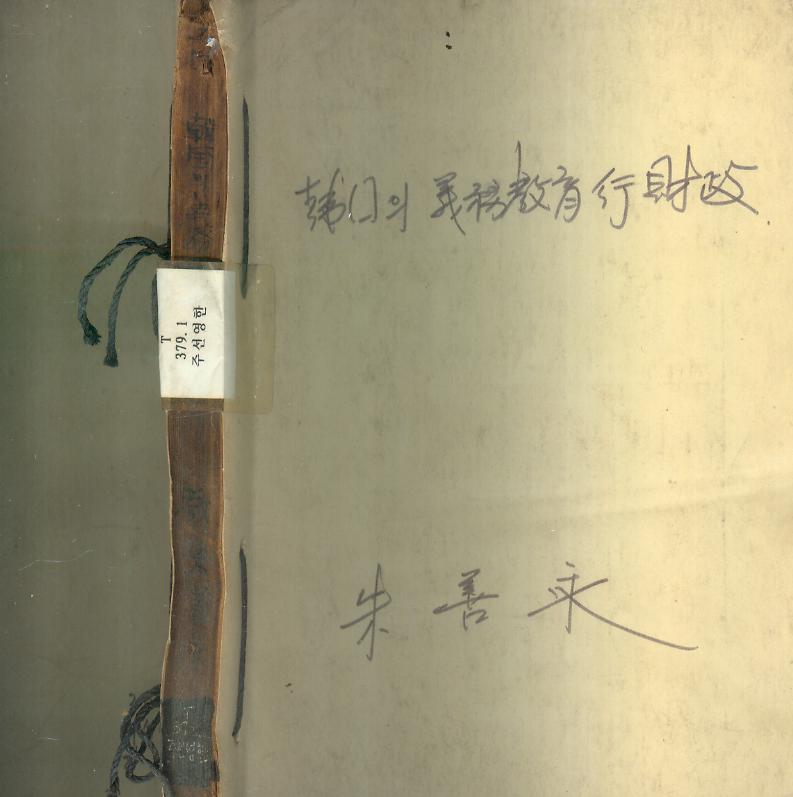 韓国의 義務教育行財政
朱善永
T
379.1
주선영한
韓國의